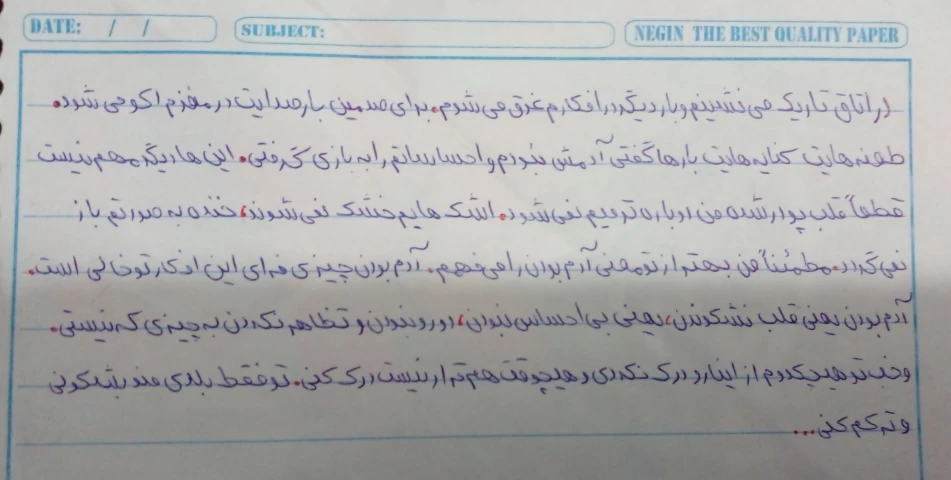 DATE: / / SUBJECT: NEGIN THE BEST QUALITY PAPER
در اتاق تاریک می نشینم و بار دیگر در افکارم غرق می شوم. برای صدمین بار صدایت در مغزم اکو می شود.
طعنه هایت کنایه هایت بارها گفتی آدمش نبودم و احساساتم را به بازی گرفتی. این ها دیگر مهم نیست
قطعاً قلب پودر شده من دوباره ترمیم نمی شود. اشک هایم خشک نمی شوند، خنده به صورتم باز
نمی گردد. مطمئناً من بهتر از تو معنی آدم بودن را می فهمم. آدم بودن چیزی فرای این افکار تو خالی است.
آدم بودن یعنی قلب نشکوندن، یعنی بی احساس نبودن، دورو نبودن و تظاهر نکردن به چیزی که نیستی.
و خب تو هیچکدوم از اینارو درک نکردی و هیچوقت هم قرار نیست درک کنی. تو فقط بلدی منو بشکونی
و ترکم کنی...